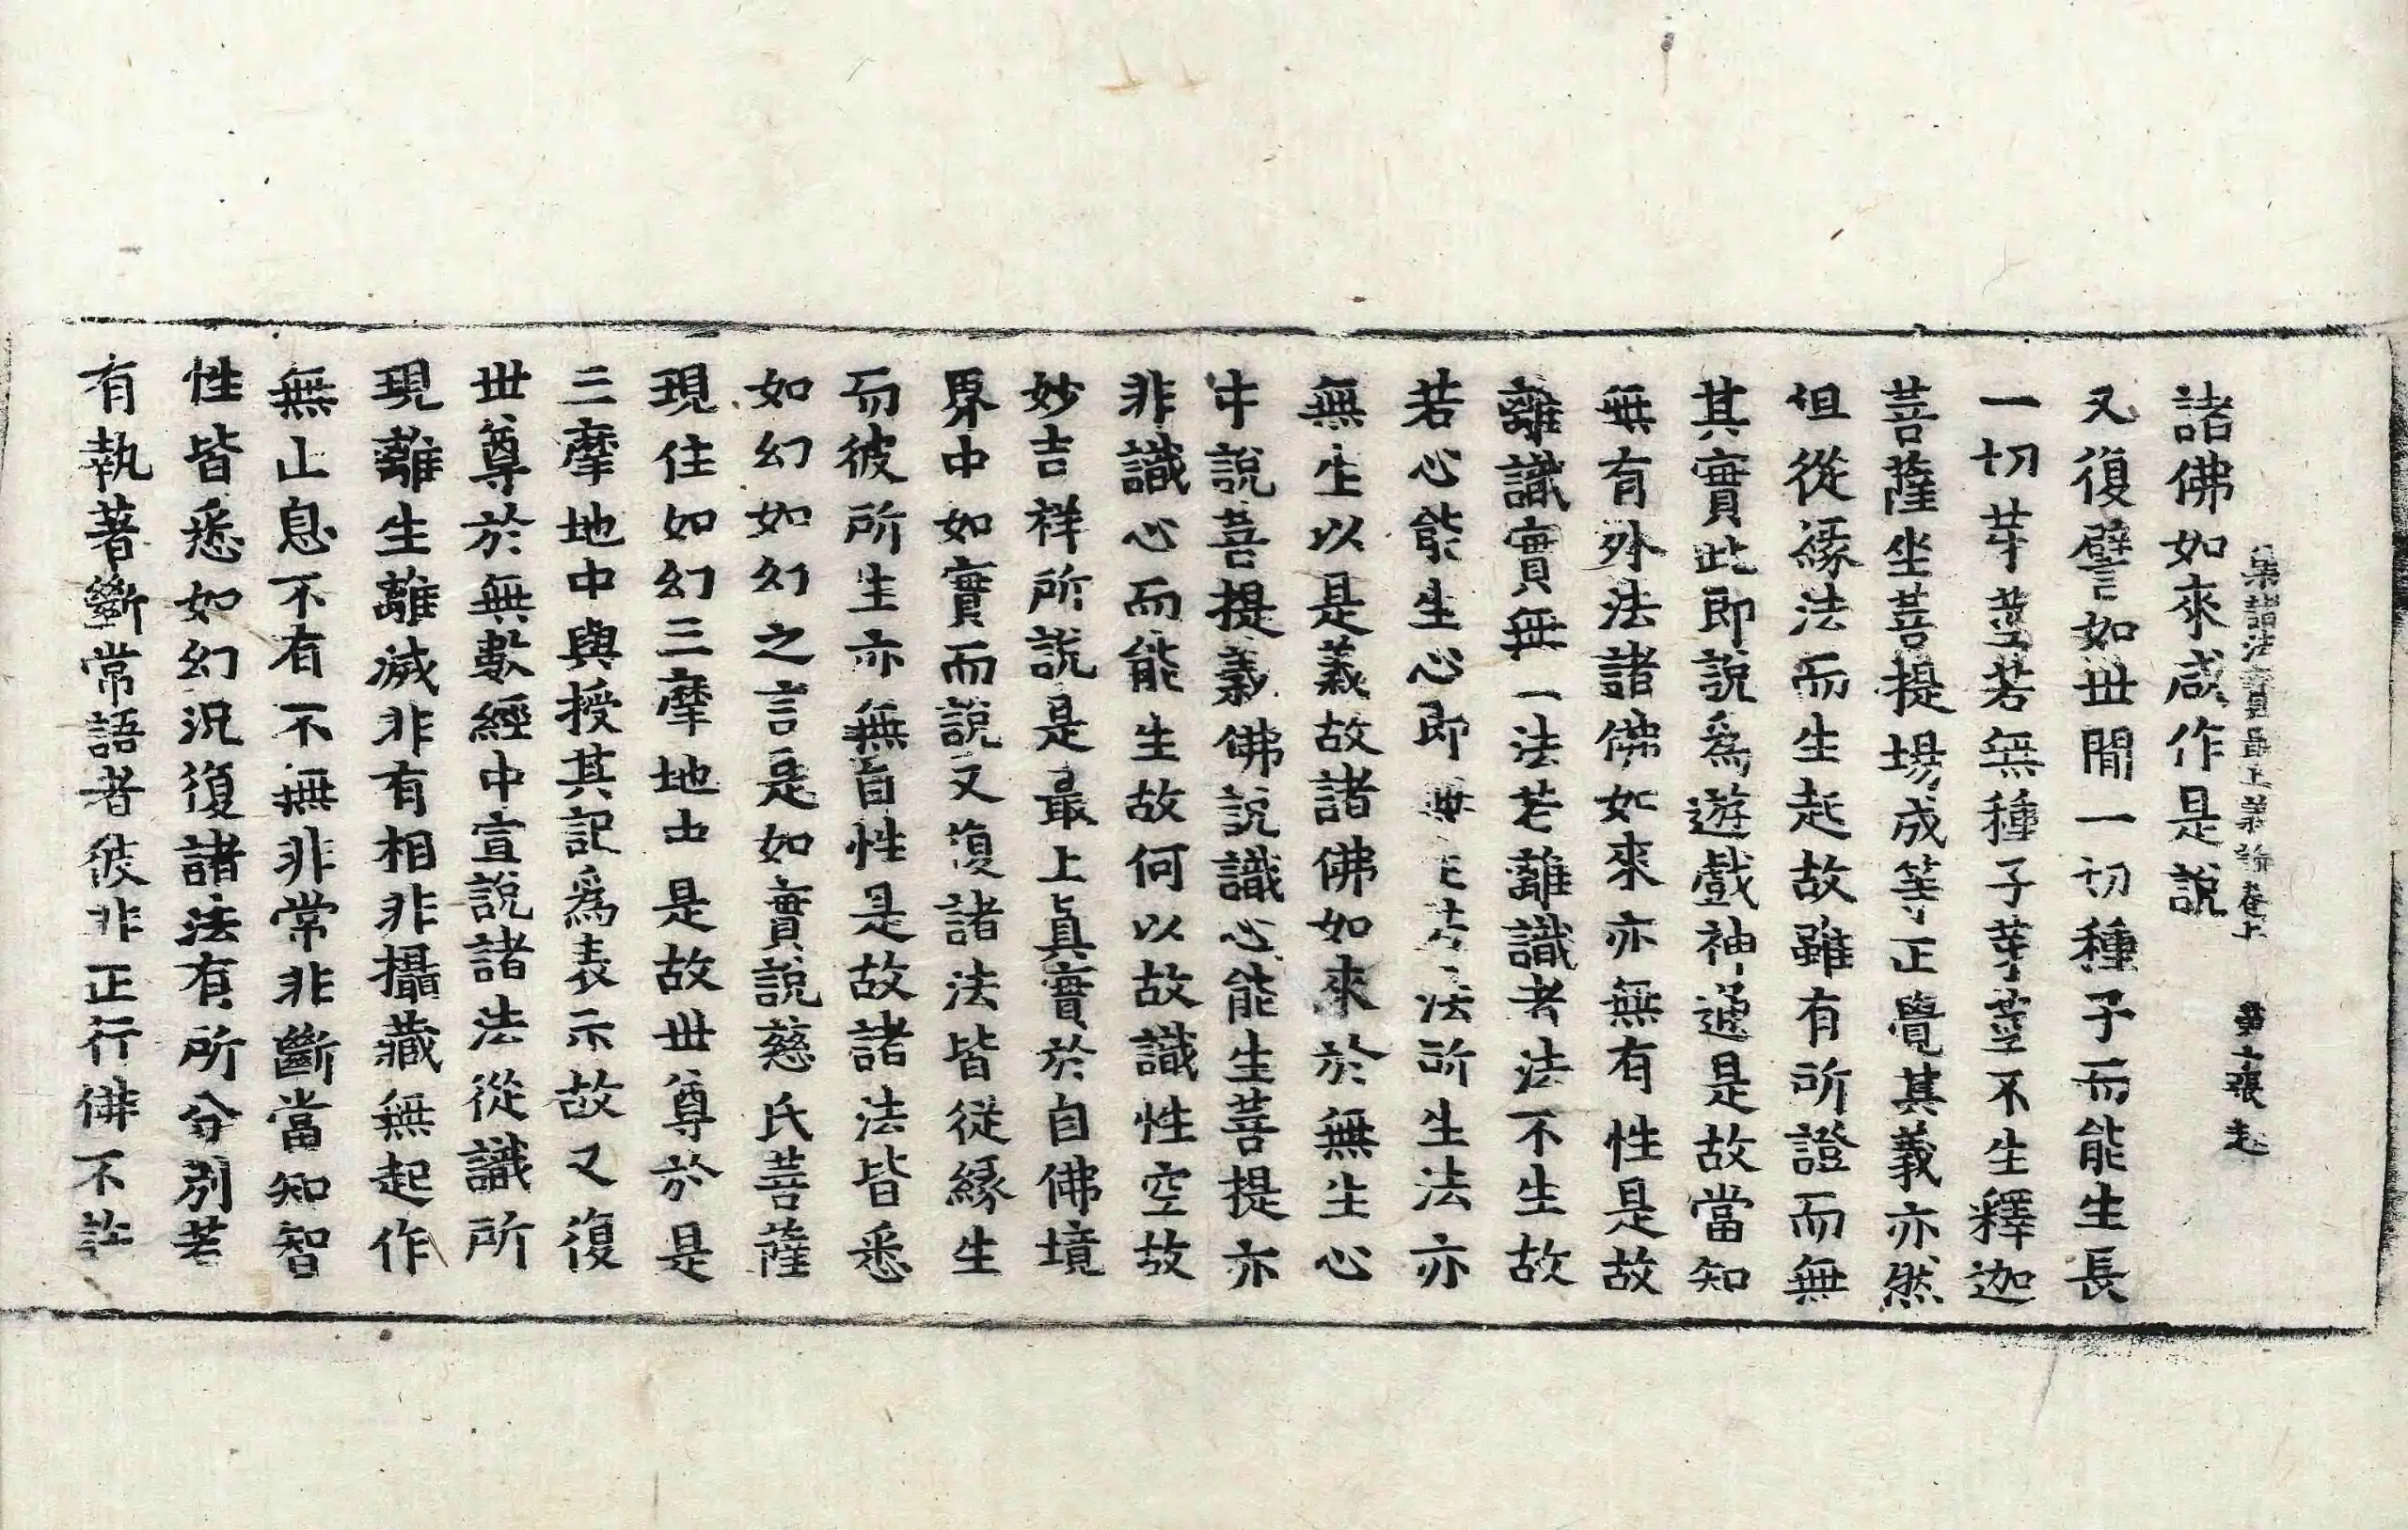 集諸法寶最上義論卷上 第六張 起
諸佛如來咸作是說
又復譬如世間一切種子而能生長
一切芽莖若無種子芽莖不生釋迦
菩薩坐菩提場成等正覺其義亦然
但從緣法而生起故雖有所證而無
其實此即說為遊戲神通是故當知
無有外法諸佛如來亦無有性是故
離識實無一法若離識者法不生故
若心能生心即無 法所生法亦
無生以是義故諸佛如來於無生心
中說菩提義佛說識心能生菩提亦
非識心而能生故何以故識性空故
妙吉祥所說是最上眞實於自佛境
界中如實而說又復諸法皆從緣生
而彼所生亦無自性是故諸法皆悉
如幻如幻之言是如實說慈氏菩薩
現住如幻三摩地中是故世尊於是
三摩地中與授其記爲表示故又復
世尊於無數經中宣說諸法從識所
現離生離滅非有相非攝藏無起作
無止息不有不無非常非斷當知智
性皆悉如幻況復諸法有所分別若
有執著斷常語者彼非正行佛不許